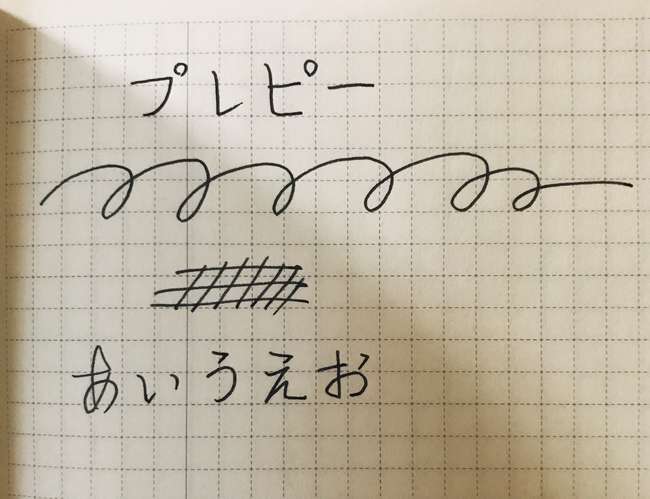 プレピー
あいうえお